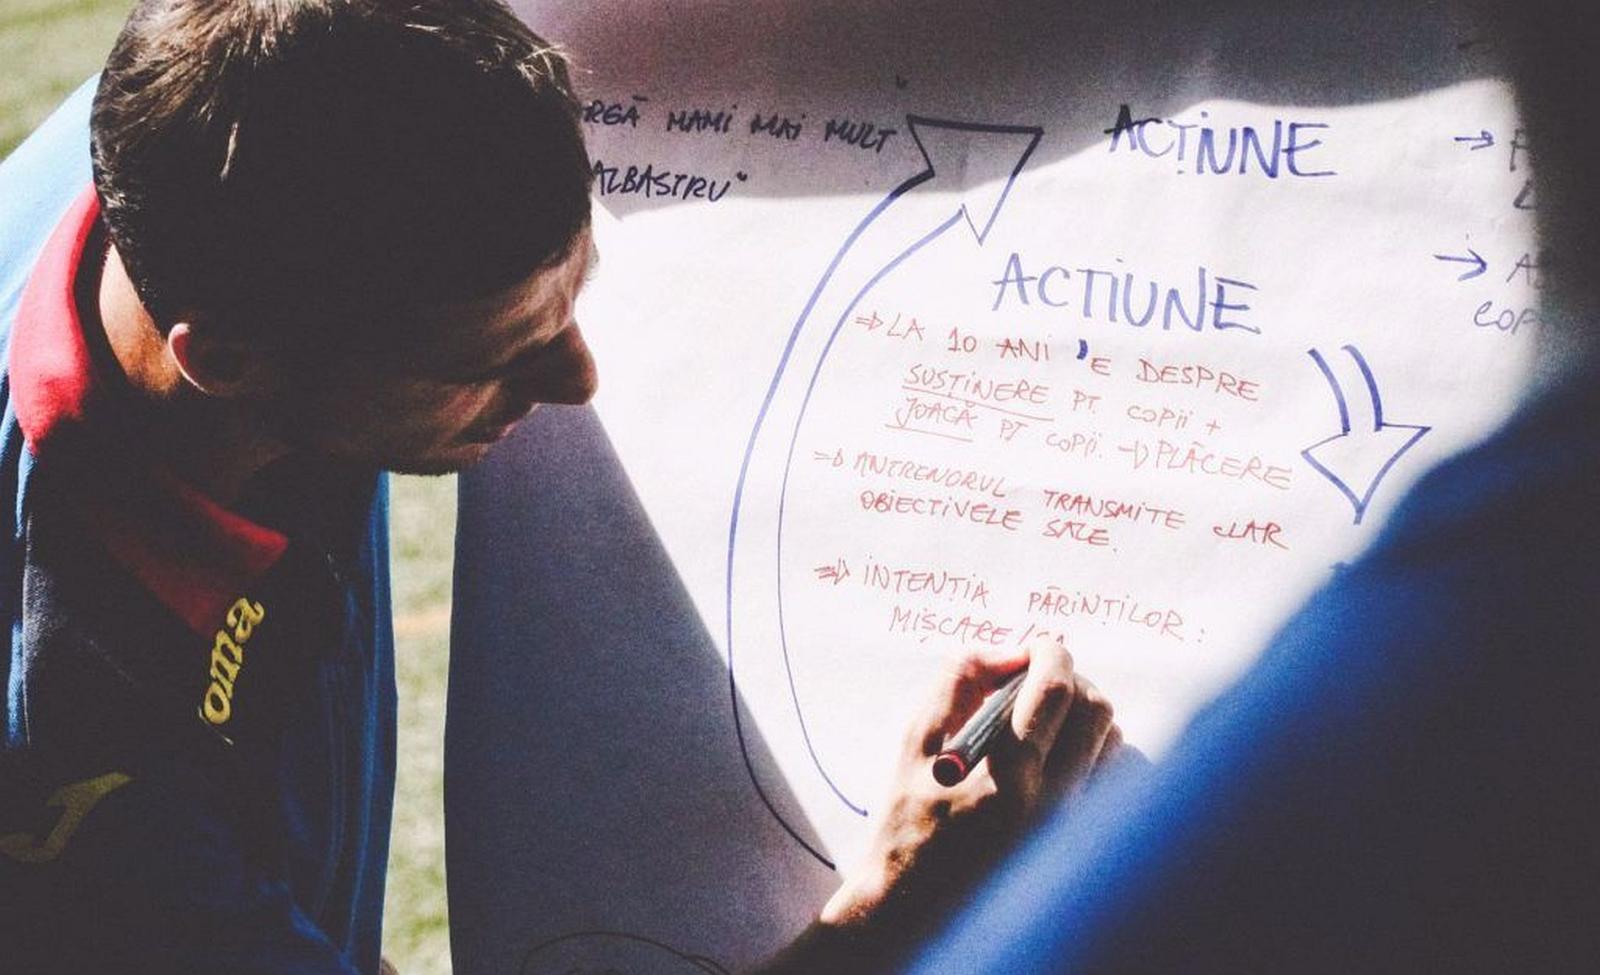 MAMI MAI MULT
ALBASTRU"
ACȚIUNNE
ACTIUNE
⇒ LA 10 ANI 'E DESPRE
SUSȚINERE PT. COPII +
JOACĂ PT COPII. → PLĂCERE
⇒ ANTRENORUL TRANSMITE CLAR
OBIECTIVELE SALE.
⇒ INTENȚIA PĂRINȚILOR:
MIȘCARE /
oma